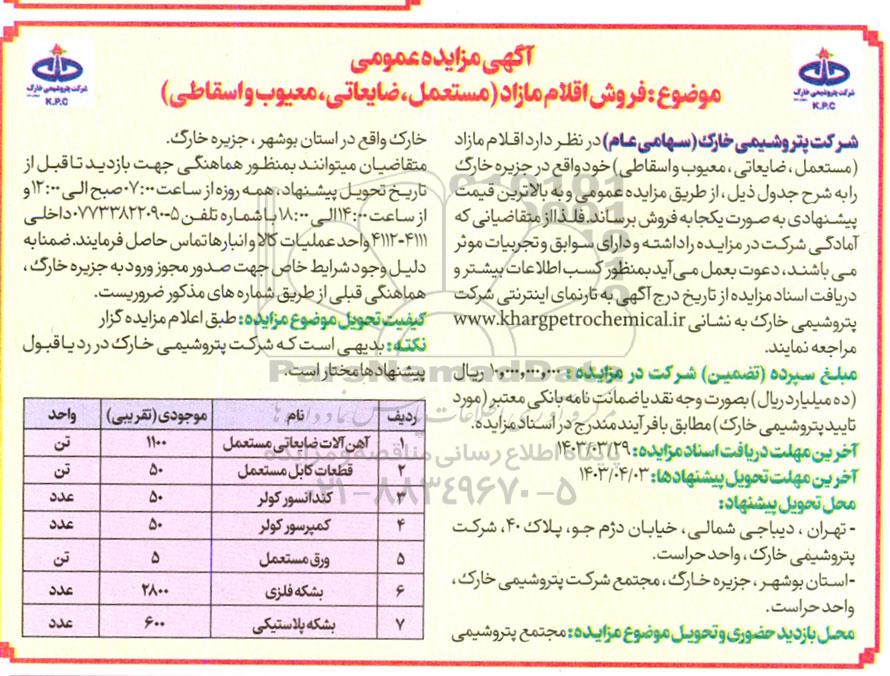 آگهی مزایده عمومی
موضوع: فروش اقلام مازاد (مستعمل، ضایعاتی، معیوب و اسقاطی)
شرکت پتروشیمی خارک
K.P.C
شرکت پتروشیمی خارک
K.P.C
شرکت پتروشیمی خارک (سهامی عام) در نظر دارد اقلام مازاد
(مستعمل، ضایعاتی، معیوب و اسقاطی) خود واقع در جزیره خارگ
را به شرح جدول ذیل، از طریق مزایده عمومی و به بالاترین قیمت
پیشنهادی به صورت یکجا به فروش برساند. فلذا از متقاضیانی که
آمادگی شرکت در مزایده را داشته و دارای سوابق و تجربیات موثر
می باشند، دعوت بعمل می آید بمنظور کسب اطلاعات بیشتر و
دریافت اسناد مزایده از تاریخ درج آگهی به تارنمای اینترنتی شرکت
پتروشیمی خارک به نشانی www.khargpetrochemical.ir
مراجعه نمایند.
مبلغ سپرده (تضمین) شرکت در مزایده: ۱۰,۰۰۰,۰۰۰,۰۰۰ ریال
(ده میلیارد ریال) بصورت وجه نقد یا ضمانت نامه بانکی معتبر (مورد
تایید پتروشیمی خارک) مطابق با فرآیند مندرج در اسناد مزایده.
آخرین مهلت دریافت اسناد مزایده: ۱۴۰۳/۰۳/۲۹
آخرین مهلت تحویل پیشنهادها: ۱۴۰۳/۰۴/۰۳
محل تحویل پیشنهاد:
- تهران، دیباجی شمالی، خیابان دژم جو، پلاک ۴۰، شرکت
پتروشیمی خارک، واحد حراست.
-استان بوشهر، جزیره خارگ، مجتمع شرکت پتروشیمی خارک،
واحد حراست.
محل بازدید حضوری و تحویل موضوع مزایده: مجتمع پتروشیمی
خارک واقع در استان بوشهر، جزیره خارگ.
متقاضیان میتوانند بمنظور هماهنگی جهت بازدید تا قبل از
تاریخ تحویل پیشنهاد، همه روزه از ساعت ۰۷:۰۰ صبح الی ۱۲:۰۰ و
از ساعت ۱۴:۰۰ الی ۱۸:۰۰ با شماره تلفن ۵-۰۷۷۳۳۸۲۲۰۹۰ داخلی
۴۱۱۱-۴۱۱۲ واحد عملیات کالا و انبارها تماس حاصل فرمایند. ضمنا به
دلیل وجود شرایط خاص جهت صدور مجوز ورود به جزیره خارگ،
هماهنگی قبلی از طریق شماره های مذکور ضروریست.
کیفیت تحویل موضوع مزایده: طبق اعلام مزایده گزار
نکته: بدیهی است که شرکت پتروشیمی خارک در رد یا قبول
پیشنهادها مختار است.
ردیف نام موجودی (تقریبی) واحد
۱ آهن آلات ضایعاتی مستعمل ۱۱۰۰ تن
۲ قطعات کابل مستعمل ۵۰ تن
۳ کندانسور کولر ۵۰ عدد
۴ کمپرسور کولر ۵۰ عدد
۵ ورق مستعمل ۵ تن
۶ بشکه فلزی ۲۸۰۰ عدد
۷ بشکه پلاستیکی ۶۰۰ عدد
ParsNamadData
پایگاه اطلاع رسانی مناقصه و مزایده
۰۲۱-۸۸۳۴۹۶۷۰-۵